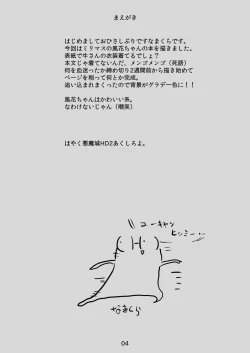 まえがき
はじめましておひさしぶりですなまくらです。
今回はミリマスの風花ちゃんの本を描きました。
表紙で牛さんの衣装着てるでしょ？
本文じゃ着てないんだ、メンゴメンゴ（死語）
何を血迷ったか締め切り2週間前から描き始めて
ページを削って何とか完成。
追い込まれまくったので背景がグラデ一色に！！
風花ちゃんはかわいい系。
なわけないじゃん（嘲笑）
はやく悪魔城HD2あくしろよ。
ユーキャン
なまくら
04